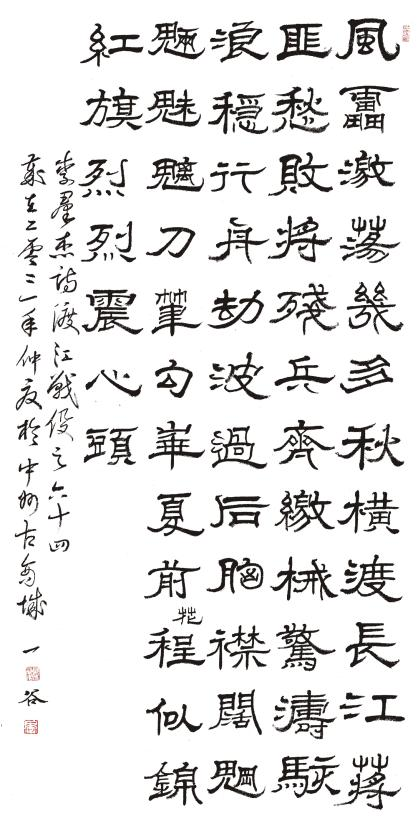 風靁激蕩幾多秋橫渡長江蔣
匪愁敗將殘兵齊繳械驚濤駭
浪穩行舟劫波過后胸襟闊魍
魎魅魑刀筆勾華夏前程似錦
紅旗烈烈震心頭
李羣杰詩渡江戰役之六十四
歲在二零二一年仲夏於中州古禹城 一谷